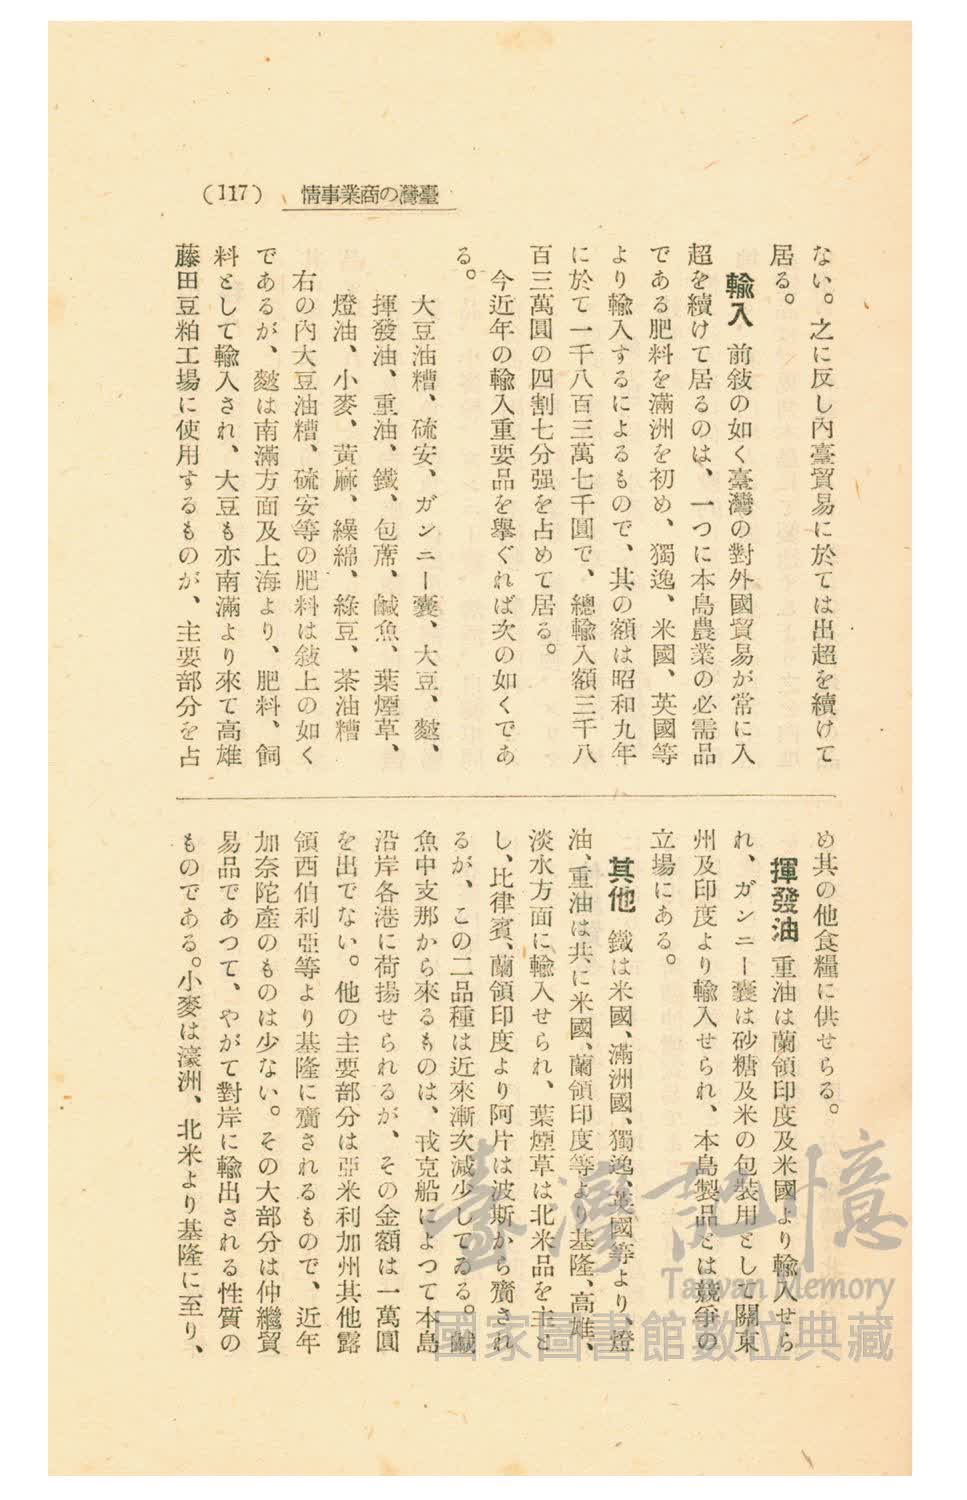 (117) 情事業商の灣臺
ない。之に反し內臺貿易に於ては出超を續けて
居る。
輸入 前敍の如く臺灣の對外國貿易が常に入
超を續けて居るのは、一つに本島農業の必需品
である肥料を滿洲を初め、獨逸、米國、英國等
より輸入するによるもので、其の額は昭和九年
に於て一千八百三萬七千圓で、總輸入額三千八
百三萬圓の四割七分强を占めて居る。
今近年の輸入重要品を擧ぐれば次の如くであ
る。
大豆油糟、硫安、ガンニー囊、大豆、麬、
揮發油、重油、鐵、包蓆、鹹魚、葉煙草、
燈油、小麥、黃麻、繰綿、綠豆、茶油糟
右の內大豆油糟、硫安等の肥料は敍上の如く
であるが、麬は南滿方面及上海より、肥料、飼
料として輸入され、大豆も亦南滿より來て高雄
藤田豆粕工場に使用するものが、主要部分を占
め其の他食糧に供せらる。
揮發油 重油は蘭領印度及米國より輸入せら
れ、ガンニー囊は砂糖及米の包裝用として關東
州及印度より輸入せられ、本島製品とは競爭の
立場にある。
其他 鐵は米國、滿洲國、獨逸、英國等より、燈
油、重油は共に米國、蘭領印度等より基隆、高雄、
淡水方面に輸入せられ、葉煙草は北米品を主と
し、比律賓、蘭領印度より阿片は波斯から齎され
るが、この二品種は近來漸次減少してゐる。鹹
魚中支那から來るものは、戎克船によつて本島
沿岸各港に荷揚せられるが、その金額は一萬圓
を出でない。他の主要部分は亞米利加州其他露
領西伯利亞等より基隆に齎されるもので、近年
加奈陀產のものは少ない。その大部分は仲繼貿
易品であつて、やがて對岸に輸出される性質の
ものである。小麥は濠洲、北米より基隆に至り、
臺灣記憶
Taiwan Memory
國家圖書館數位典藏